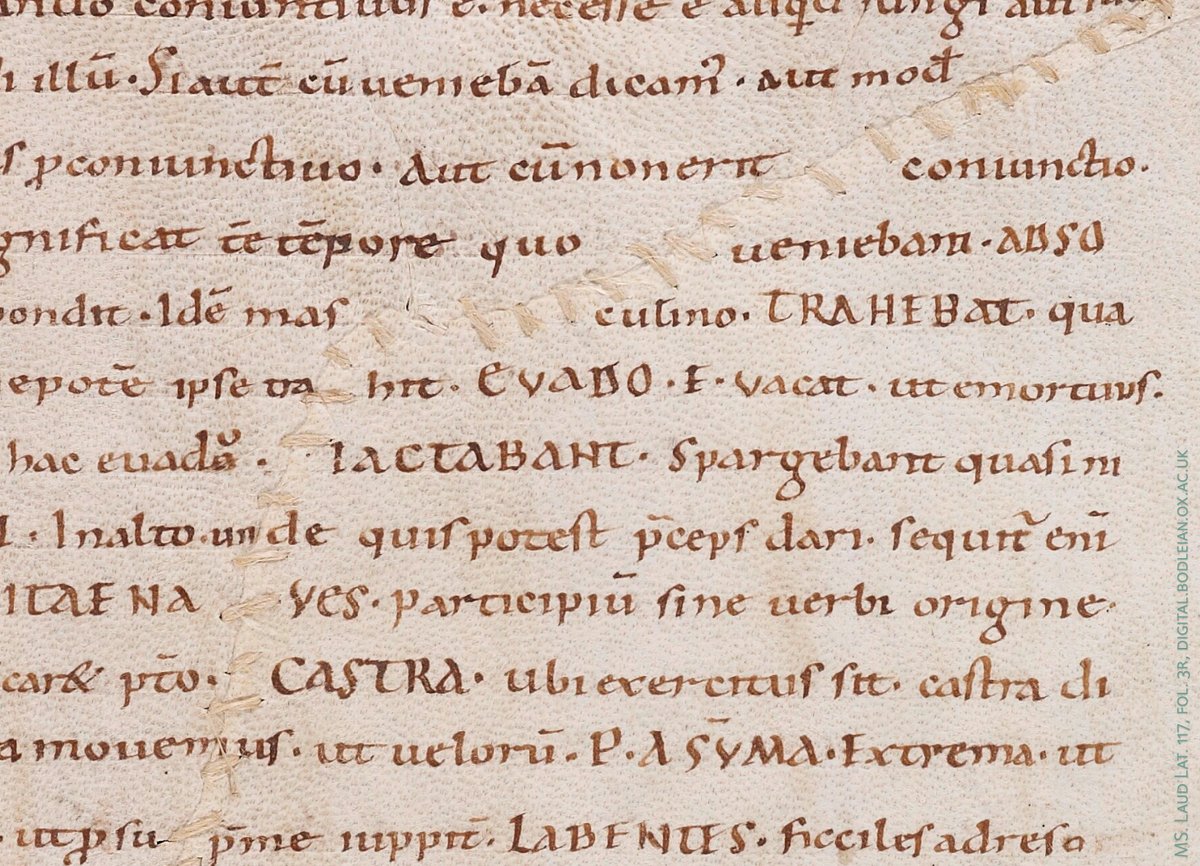 coniunctiuus ē. necesse ē aliqd iungi aut
illū. Si autē cū ueniebā dicam᷒. aut mod̄
s ꝓconiunctiuo. Aut cū non erit coniunctio.
gnificat tē tēpore quo ueniebam. ABSO
pondit. Idē masculino. TRAHEBAT. qua
epotē ipse trahit. EVADO. E. vacat. ut emortuus.
hac euado. IACTABANT. Spargebant quasi in
I. In alto. unde quis potest p̄ceps dari. sequit̄ enī
ITAE NAVES. participiū sine uerbi origine.
car& pt̄o. CASTRA. Ubi exercitus sit. castra di
a mouemus. ut uelorū. P. A SȲMA. Extrema. ut
. ut ꝓsu p̄me iuppit̄. LABENTES. ficciles ad reso
MS. LAUD LAT. 117, FOL. 3R, DIGITAL.BODLEIAN.OX.AC.UK